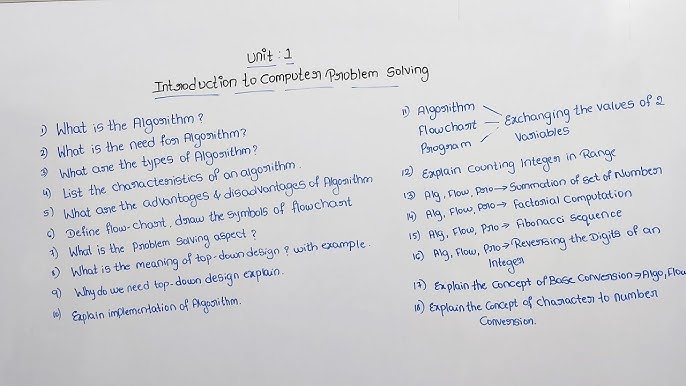 Unit : 1
Introduction to Computer Problem Solving
1) What is the Algorithm ?
2) What is the need for Algorithm?
3) What are the types of Algorithm?
4) List the characteristics of an algorithm.
5) What are the advantages & disadvantages of Algorithm
6) Define flow-chart, draw the symbols of flowchart
7) What is the Problem Solving aspect ?
8) What is the meaning of top-down design ? with example.
9) Why do we need top-down design explain.
10) Explain implementation of Algorithm.
11) Algorithm
Flowchart
Program
Exchanging the values of 2
Variables
12) Explain Counting Integer in Range
13) Alg, Flow, Pro → Summation of set of Number
14) Alg, Flow, Pro → Factorial Computation
15) Alg, Flow, Pro → Fibonacci Sequence
16) Alg, Flow, Pro → Reversing the Digits of an
Integer
17) Explain the Concept of Base Conversion → Algo, Flow
18) Explain the Concept of character to number
Conversion.